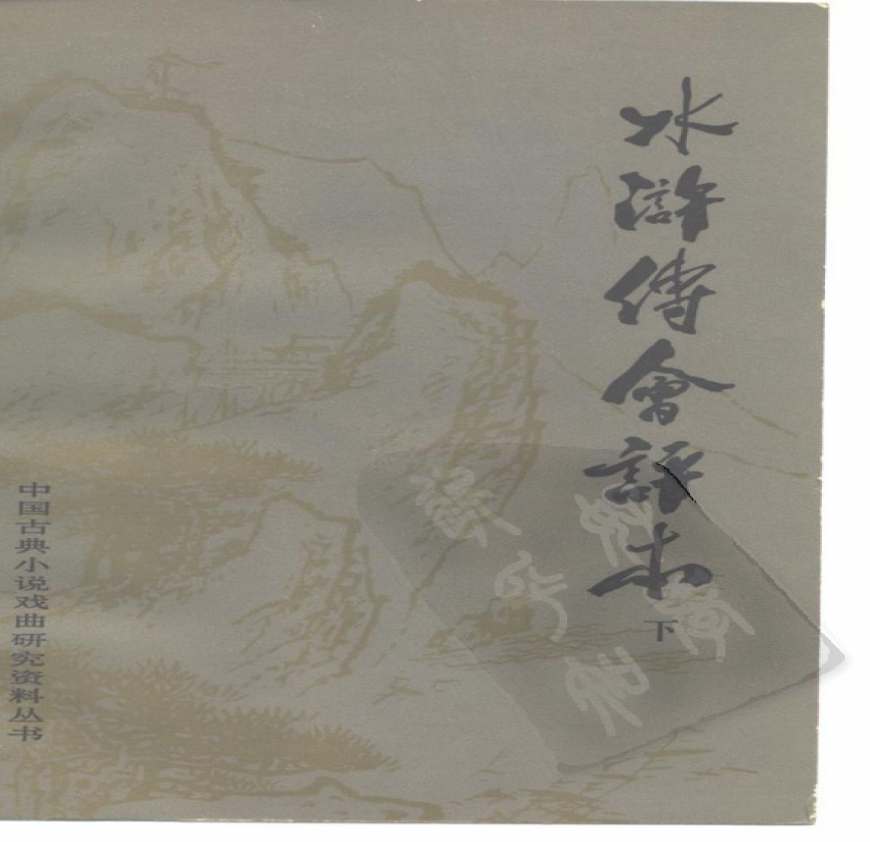 水滸傳會評本
下
中国古典小说戏曲研究资料丛书